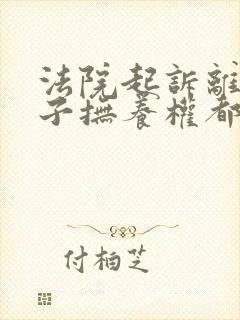 法院起訴離
子撫養權都
付柏芝